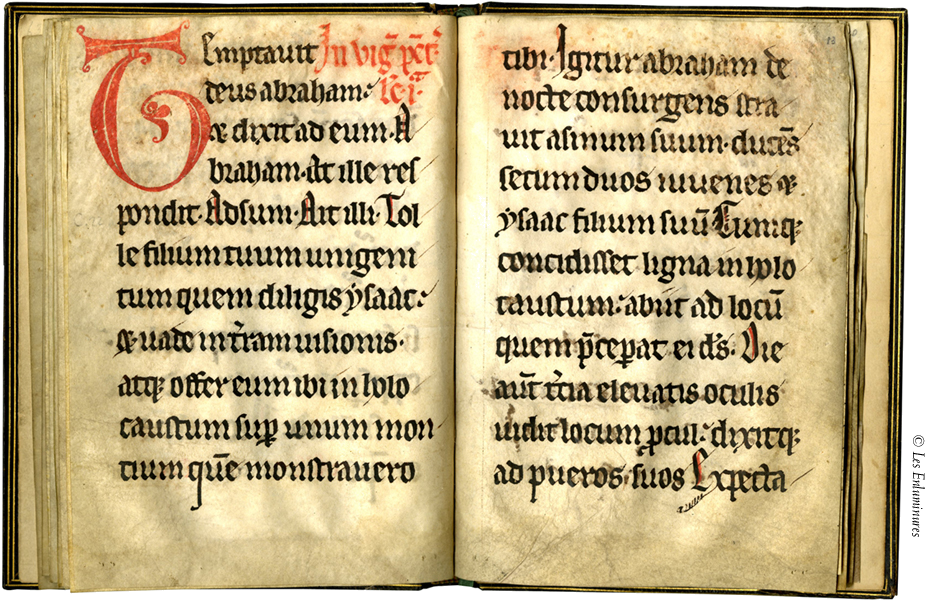 TEmptauit In uig̃ pēt̃.
deus abraham:
& dixit ad eum. A
braham. At ille res
pondit. Adsum. Ait illi. Tol
le filium tuum unigeni
tum quem diligis ẏsaac:
& uade in tr̃am uisionis.
atq; offer eum ibi in holo
caustum suꝑ unum mon
tium quē monstrauero
tibi. Igitur abraham de
nocte consurgens stra
uit asinum suum. ducēs
secum duos iuuenes &
ẏsaac filium suū. Cumq;
concidisset ligna in holo
caustum: abiit ad locū
quem p̄ceperat ei ds̄. Die
aūt tr̃cia eleuatis oculis
uidit locum ꝓcul: dixitq;
ad pueros suos. Expecta
© Les Enluminures